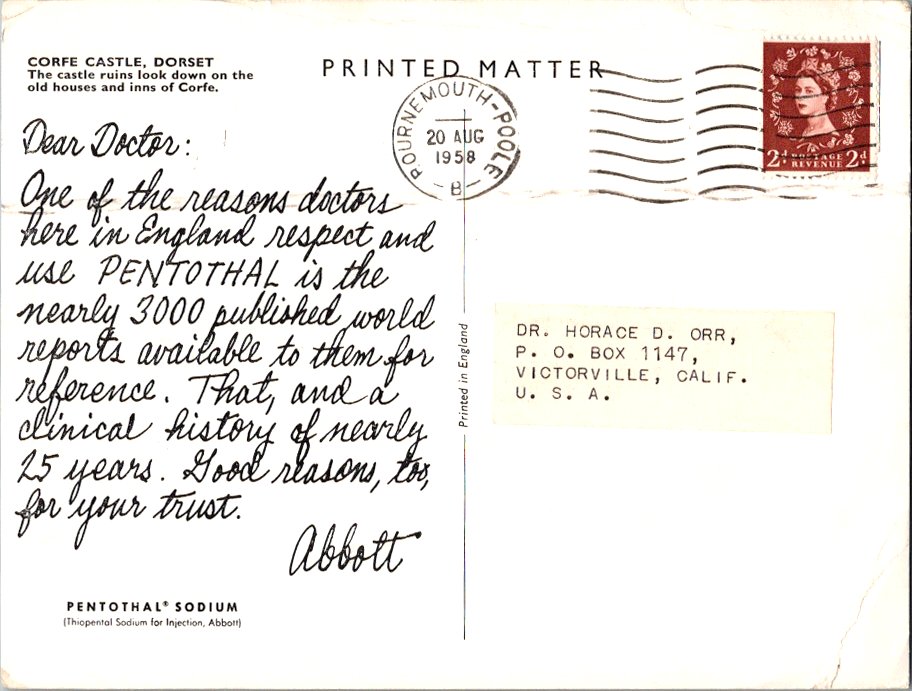 CORFE CASTLE, DORSET
The castle ruins look down on the
old houses and inns of Corfe.
PRINTED MATTER
BOURNEMOUTH-POOLE
20 AUG
1958
B
2d POSTAGE 2d
REVENUE
Dear Doctor:
One of the reasons doctors
here in England respect and
use PENTOTHAL is the
nearly 3000 published world
reports available to them for
reference. That, and a
clinical history of nearly
25 years. Good reasons, too,
for your trust.
Abbott
PENTOTHAL® SODIUM
(Thiopental Sodium for Injection, Abbott)
Printed in England
DR. HORACE D. ORR,
P. O. BOX 1147,
VICTORVILLE, CALIF.
U. S. A.